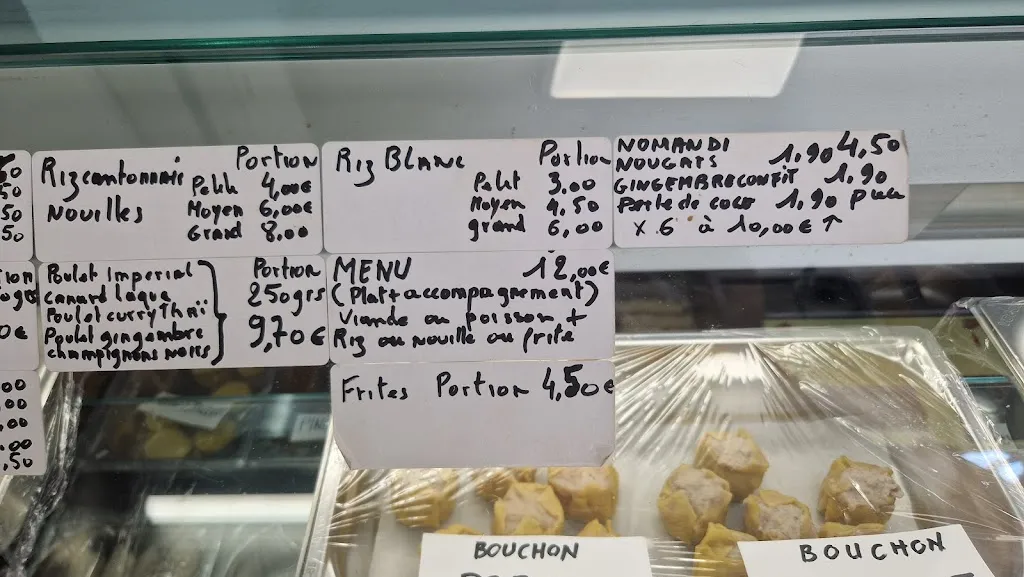 50
50
50
50
Rizcantonnais Portion
Petite 4,00€
Nouilles Moyen 6,00€
Grand 8,00
Riz Blanc Portion
Petit 3.00
Moyen 4.50
grand 6,00
NOMANDI 4,50
NOUGATS 1,90
GINGEMBRE CONFIT 1,90
Perle de coco 1,90 piece
x 6 à 10,00€ ↑
Poulet Imperial
canard laque
Poulet curry Thaï
Poulet gingembre
champignons noirs
Portion
250grs
9,70€
MENU 12,00€
(Plat + accompagnement)
Viande ou poisson +
Riz ou nouille ou frite
Frites Portion 4,50€
00
,00
,00
,00
,50
BOUCHON
BOUCHON